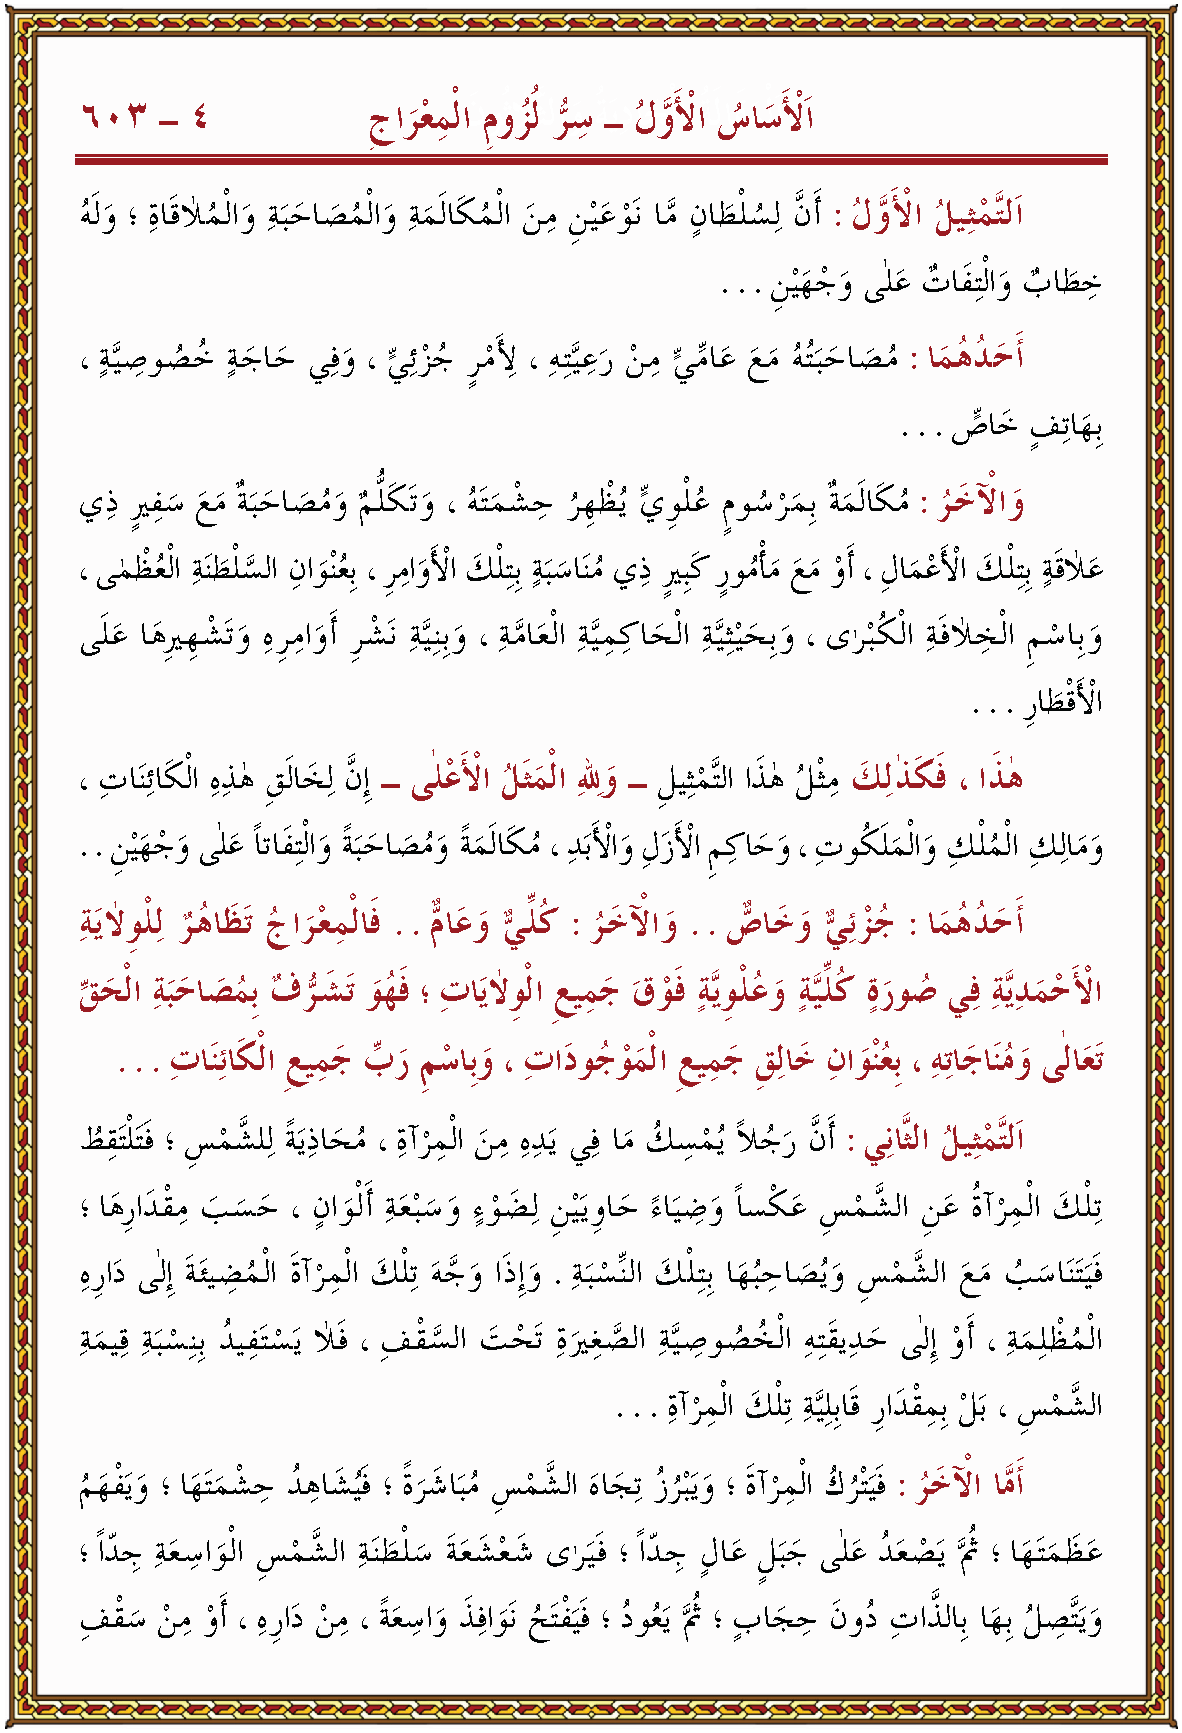 اَلْأَسَاسُ الْأَوَّلُ ــ سِرُّ لُزُومِ الْمِعْرَاجِ ٤ – ٦٠٣
اَلتَّمْثِيلُ الْأَوَّلُ : أَنَّ لِسُلْطَانٍ مَّا نَوْعَيْنِ مِنَ الْمُكَالَمَةِ وَالْمُصَاحَبَةِ وَالْمُلَاقَاةِ ؛ وَلَهُ
خِطَابٌ وَالْتِفَاتٌ عَلٰى وَجْهَيْنِ . . .
أَحَدُهُمَا : مُصَاحَبَتُهُ مَعَ عَامِّيٍّ مِنْ رَعِيَّتِهِ ، لِأَمْرٍ جُزْئِيٍّ ، وَفِي حَاجَةٍ خُصُوصِيَّةٍ ،
بِهَاتِفٍ خَاصٍّ . . .
وَالْآخَرُ : مُكَالَمَةٌ بِمَرْسُومٍ عُلْوِيٍّ يُظْهِرُ حِشْمَتَهُ ، وَتَكَلُّمٌ وَمُصَاحَبَةٌ مَعَ سَفِيرٍ ذِي
عَلَاقَةٍ بِتِلْكَ الْأَعْمَالِ ، أَوْ مَعَ مَأْمُورٍ كَبِيرٍ ذِي مُنَاسَبَةٍ بِتِلْكَ الْأَوَامِرِ ، بِعُنْوَانِ السَّلْطَنَةِ الْعُظْمٰى ،
وَبِاسْمِ الْخِلَافَةِ الْكُبْرٰى ، وَبِحَيْثِيَّةِ الْحَاكِمِيَّةِ الْعَامَّةِ ، وَبِنِيَّةِ نَشْرِ أَوَامِرِهِ وَتَشْهِيرِهَا عَلَى
الْأَقْطَارِ . . .
هٰذَا ، فَكَذٰلِكَ مِثْلُ هٰذَا التَّمْثِيلِ ــ وَلِلّٰهِ الْمَثَلُ الْأَعْلٰى ــ إِنَّ لِخَالَقِ هٰذِهِ الْكَائِنَاتِ ،
وَمَالِكِ الْمُلْكِ وَالْمَلَكُوتِ ، وَحَاكِمِ الْأَزَلِ وَالْأَبَدِ ، مُكَالَمَةً وَمُصَاحَبَةً وَالْتِفَاتاً عَلٰى وَجْهَيْنِ . .
أَحَدُهُمَا : جُزْئِيٌّ وَخَاصٌّ . . وَالْآخَرُ : كُلِّيٌّ وَعَامٌّ . . فَالْمِعْرَاجُ تَظَاهُرٌ لِلْوِلَايَةِ
الْأَحْمَدِيَّةِ فِي صُورَةٍ كُلِّيَّةٍ وَعُلْوِيَّةٍ فَوْقَ جَمِيعِ الْوِلَايَاتِ ؛ فَهُوَ تَشَرُّفٌ بِمُصَاحَبَةِ الْحَقِّ
تَعَالٰى وَمُنَاجَاتِهِ ، بِعُنْوَانِ خَالِقِ جَمِيعِ الْمَوْجُودَاتِ ، وَبِاسْمِ رَبِّ جَمِيعِ الْكَائِنَاتِ . . .
اَلتَّمْثِيلُ الثَّانِي : أَنَّ رَجُلاً يُمْسِكُ مَا فِي يَدِهِ مِنَ الْمِرْآةِ ، مُحَاذِيَةً لِلشَّمْسِ ؛ فَتَلْتَقِطُ
تِلْكَ الْمِرْآةُ عَنِ الشَّمْسِ عَكْساً وَضِيَاءً حَاوِيَيْنِ لِضَوْءٍ وَسَبْعَةِ أَلْوَانٍ ، حَسَبَ مِقْدَارِهَا ؛
فَيَتَنَاسَبُ مَعَ الشَّمْسِ وَيُصَاحِبُهَا بِتِلْكَ النِّسْبَةِ . وَإِذَا وَجَّهَ تِلْكَ الْمِرْآةَ الْمُضِيئَةَ إِلٰى دَارِهِ
الْمُظْلِمَةِ ، أَوْ إِلٰى حَدِيقَتِهِ الْخُصُوصِيَّةِ الصَّغِيرَةِ تَحْتَ السَّقْفِ ، فَلَا يَسْتَفِيدُ بِنِسْبَةِ قِيمَةِ
الشَّمْسِ ، بَلْ بِمِقْدَارِ قَابِلِيَّةِ تِلْكَ الْمِرْآةِ . . .
أَمَّا الْآخَرُ : فَيَتْرُكُ الْمِرْآةَ ؛ وَيَبْرُزُ تِجَاهَ الشَّمْسِ مُبَاشَرَةً ؛ فَيُشَاهِدُ حِشْمَتَهَا ؛ وَيَفْهَمُ
عَظَمَتَهَا ؛ ثُمَّ يَصْعَدُ عَلٰى جَبَلٍ عَالٍ جِدّاً ؛ فَيَرٰى شَعْشَعَةَ سَلْطَنَةِ الشَّمْسِ الْوَاسِعَةِ جِدّاً ؛
وَيَتَّصِلُ بِهَا بِالذَّاتِ دُونَ حِجَابٍ ؛ ثُمَّ يَعُودُ ؛ فَيَفْتَحُ نَوَافِذَ وَاسِعَةً ، مِنْ دَارِهِ ، أَوْ مِنْ سَقْفِ